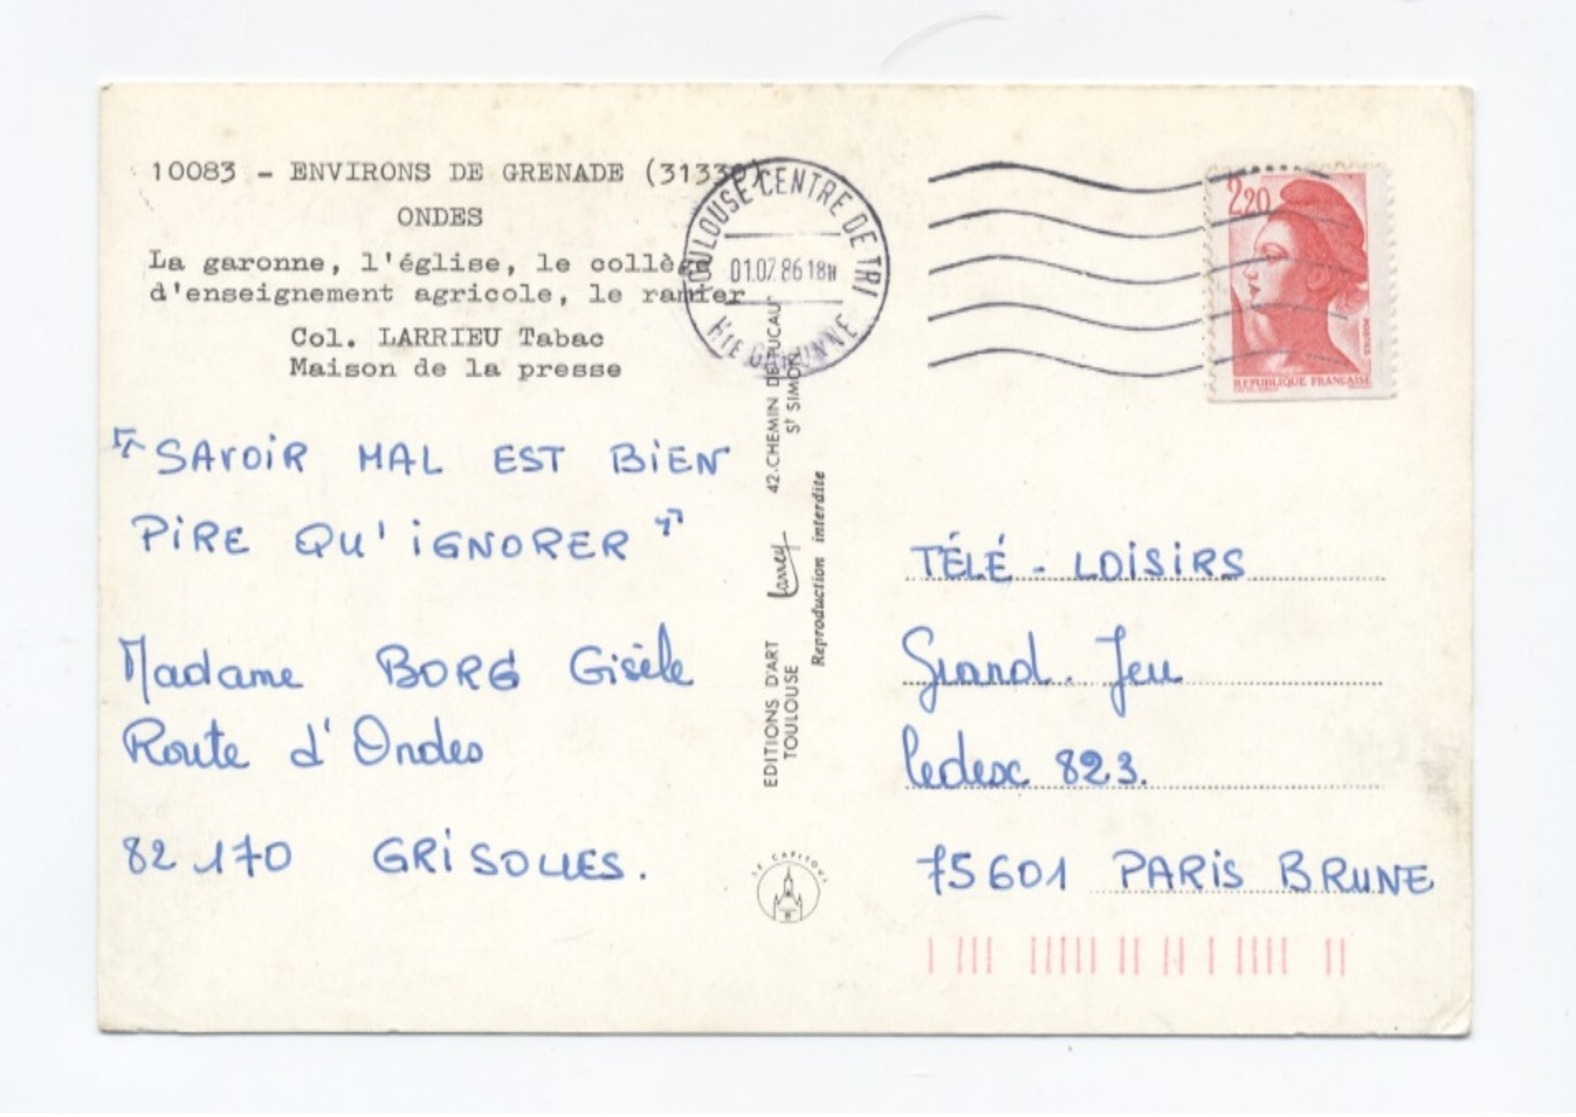 10083 - ENVIRONS DE GRENADE (31330)
ONDES
La garonne, l'église, le collège
d'enseignement agricole, le ramier
Col. LARRIEU Tabac
Maison de la presse
"SAVOIR MAL EST BIEN
PIRE QU'IGNORER"
Madame BORG Gisèle
Route d'Ondes
82 170 GRISOLLES.
EDITIONS D'ART Larrey 42.CHEMIN DE
TOULOUSE St SIMON
Reproduction interdite
LE CAPITOUL
TOULOUSE CENTRE DE TRI
01.07.86 18H
Hte GARONNE
2,20
POSTES
REPUBLIQUE FRANÇAISE
TÉLÉ - LOISIRS
Grand. Jeu
Cedex 823.
75601 PARIS BRUNE